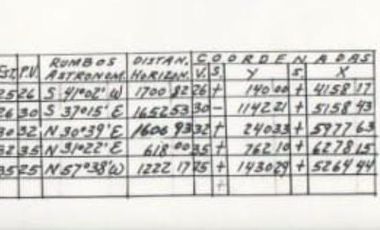 C O O R D E N A D A S
EST. P.V. RUMBOS ASTRONOM. DISTAN. HORIZON. V. S. Y S. X
25 26 S 41°02' W 1700 82 26 + 140 00 + 4158 17
26 30 S 37°15' E 1652 53 30 - 1142 21 + 5158 43
30 32 N 30°39' E 1606 93 32 + 240 33 + 5977 63
32 35 N 31°22' E 618 00 35 + 762 10 + 6278 15
35 25 N 57°38' W 1222 17 25 + 1430 29 + 5264 44
+